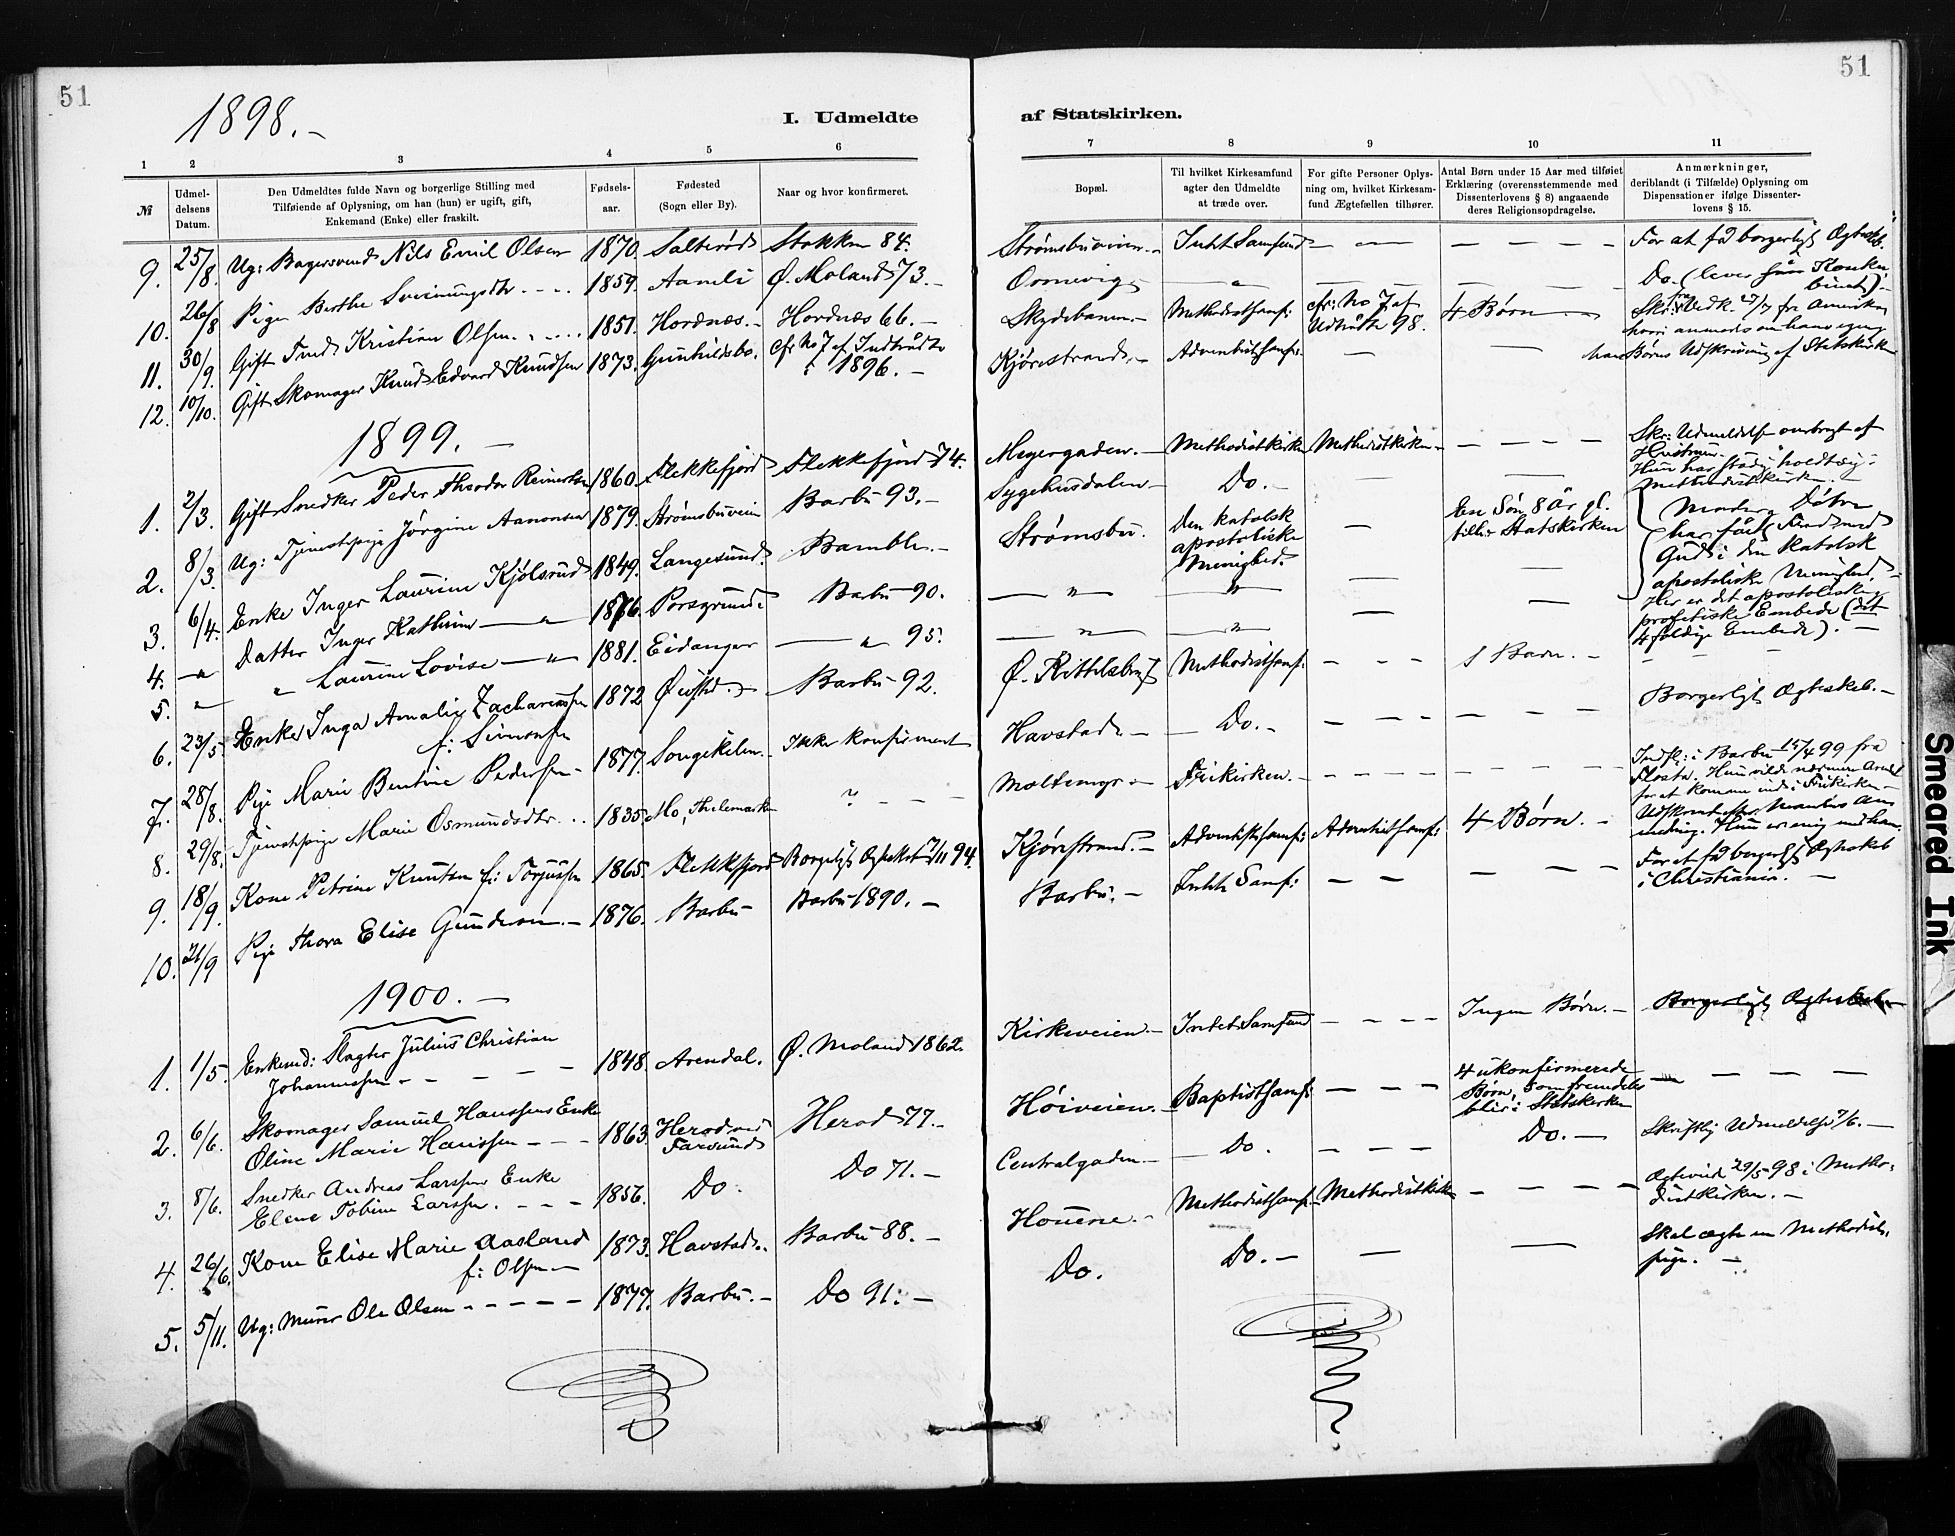 51
1898.-
I. Udmeldte
1 2 3 4 5 6
№
Udmel-
delsens
Datum.
Den Udmeldtes fulde Navn og borgerlige Stilling med
Tilføiende af Oplysning, om han (hun) er ugift, gift,
Enkemand (Enke) eller fraskilt.
Fødsels-
aar.
Fødested
(Sogn eller By).
Naar og hvor konfirmeret.
9. 25/8. Ug: Bagersvend Nils Emil Olsen 1870. Salterød Stokken 84.
10. 26/8 Pige Berthe Sveinungsdtr. 1859. Aamli Ø. Moland 73.-
11. 30/9. Gift Kristian Olsen. 1851. Hordnæs.- Hordnæs 66.-
12. 10/10. Gift Skomager Knud Edvard Knudsen 1873. Gunhildsbo. cfr No 7 af Indtrådte
i 1896.-
1899.-
1. 2/3. Gift Snedker Peder Theodor Reinertsen 1860. Flekkefjord Flekkefjord 74.
2. 8/3. Ug: Tjenestepige Jørgine Aanonsen 1879. Strømsbuveien Barbu 93.-
3. 6/4. Enke Inger Laurine Kjølsrud 1849. Langesund. Bamble.-
4. —"— Datter Inger Kathrine —"— 1876. Porsgrund. Barbu 90.
5. " " Laurine Lovise —"— 1881. Eidanger —"— 95.
6. 23/5. Enke Inga Amalie Zachariassen
f: Simonsen 1872 Øiestad.- Barbu 92.
7. 28/8. Pige Marie Bentine Pedersen- 1877. Songekilen. Ikke konfirmeret
8. 29/8. Tjenestepige Marie Osmundsdtr. 1835. Mo, Thelemarken ? - - -
9. 18/9. Kone Petrine Knutsen f: Torjussen 1865. Flekkefjord Borgerligt Ægteskab 7/11 94.
10. 21/9 Pige Thora Elise Gundersen.- 1876. Barbu- Barbu 1890.-
1900.-
1. 1/5. Enkemd: Slagter Julius Christian
Johannessen - - - 1848. Arendal. Ø. Moland 1862.
2. 6/6. Skomager Samuel Hanssens Enke
Oline Marie Hanssen - - - 1863. Herod ved
Farsund Herod 77.-
3. 8/6. Snedker Andreas Larssens Enke
Elene Tobine Larssen. - - - 1856. Do. Do 71.-
4. 26/6. Kone Elise Marie Aasland
f: Olsen- 1873. Havstad.. Barbu 88.-
5. 5/11. Ug: Murer Ole Olsen - - - - 1877. Barbu.- Do 91.-
51
af Statskirken.
7 8 9 10 11
Bopæl.
Til hvilket Kirkesamfund
agter den Udmeldte
at træde over.
For gifte Personer Oplys-
ning om, hvilket Kirkesam-
fund Ægtefællen tilhører.
Antal Børn under 15 Aar med tilføiet
Erklæring (overensstemmende med
Dissenterlovens § 8) angaaende
deres Religionsopdragelse.
Anmærkninger,
deriblandt (i Tilfælde) Oplysning om
Dispensationer ifølge Dissenter-
lovens § 15.
Strømsbuveien.- Intet Samfund - - - - - - - For at få borgerligt Ægteskb.
Ormevig " Do. (lever
Skydebanen.- Methodistsamf: cfr: No 7 af
Udtrådte 98. 4 Børn Skr: Medk. 27/7 fra Amerika,
Kjørrestrand.- Adventistsamf: - - Børns Udskrivning af Statskirken
Meyergaden.- Methodistkirken Methodistkirken- - - - - Skr: Udmeldelse ombragt af
Hustruen.-
Sygehusdalen- Do.- - - Hun har stadig holdt sig
Methodistkirken.-
Strømsbu. Den katolsk
apostoliske
Menighed. - En Søn 8 År gl.
bliver i Statskirken Moder og Døtre
har fået Fred med
Gud i den katolsk
apostoliske Menighed.
—"— —"— - - Her er det apostoliske,
profetiske Embede (det
4 foldige Embede).-
—"— —"— - -
Ø. Kittelsbugt Methodistsamf: - - - 1 Barn.- - - -
Havstad- Do.- - - - - - - Borgerligt Ægteskab.-
Moltemyr- Frikirken.- - - - - - - Indfl: i Barbu 15/4 99 fra
Flosta. Hun vilde nærmere Arendal
for at komme ind i Frikirken-
Kjørrestrand.- Adventistsamf: Adventistsamf: 4 Børn.- Udskrevet efter Mandens An-
melding. Hun er enig med ham.
Barbu.- Intet Samf: - - - - - For at få borgerligt Ægteskab
i Christiania.-
Kirkeveien.- Intet Samfund - - - - Ingen Børn.- Borgerligt Ægteskab-
Høiveien.- Baptistsamf: - - - 4 ukonfirmerede
Børn, som fremdeles
bliver i Statskirken - - - -
Centralgaden.- Do. Do.- Skriftlig Udmeldelse 7/6.-
Houene.- Methodistsamf. Methodistkirken - - - - Ægteviet 29/5 98 i Metho-
distkirken.-
Do. Do.- - - Skal ægte en Methodist-
pige.-
Smeared Ink